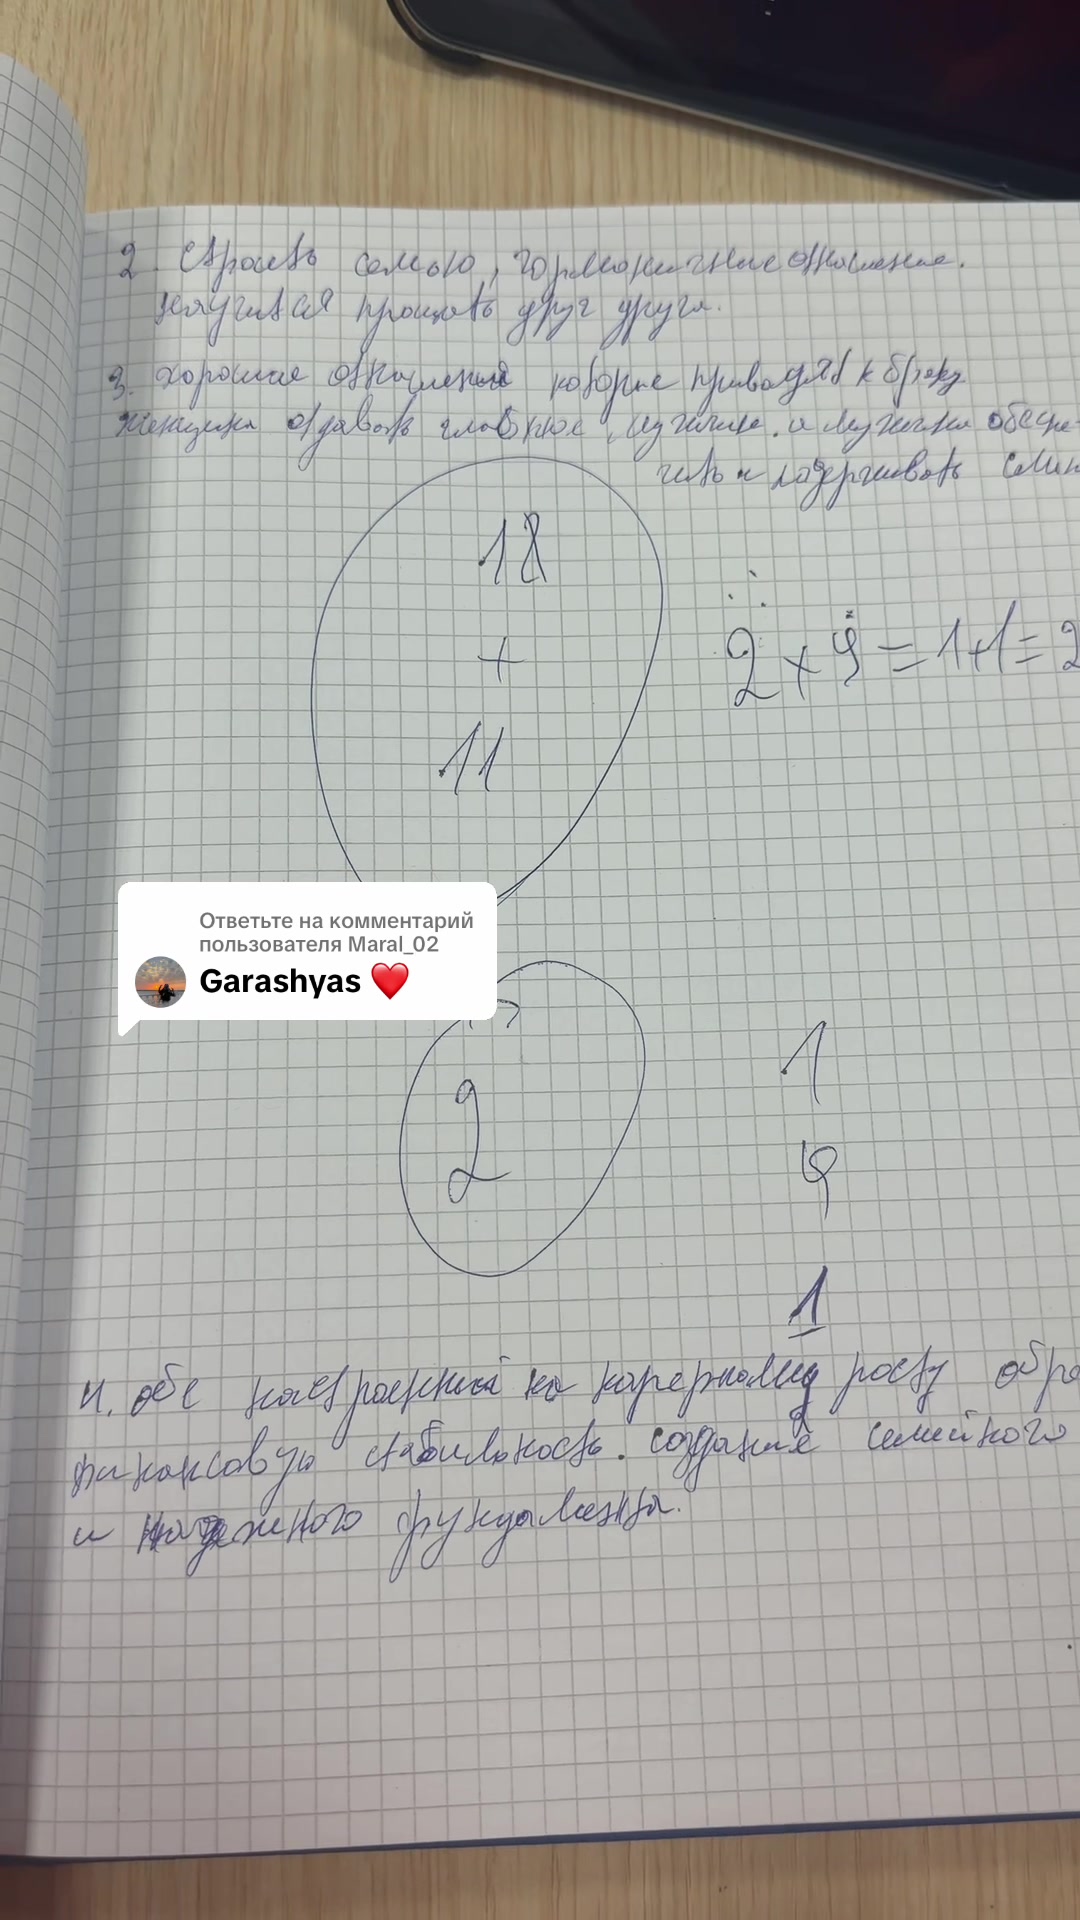 2. Строить семью, гармоничные отношение.
научится прощать друг друга.
3. хорошие отношения которые приводят к браку
женщина отдавать главное мужчине. и мужчина обеспе-
чить и подерживать
18
+
11
2 x 9 = 1+1 = 2
Ответьте на комментарий
пользователя Maral_02
Garashyas ❤️
2
1
9
1
4. обе на карерному росту
финансовую стабильность. создание семейного
и надежного фундамента.